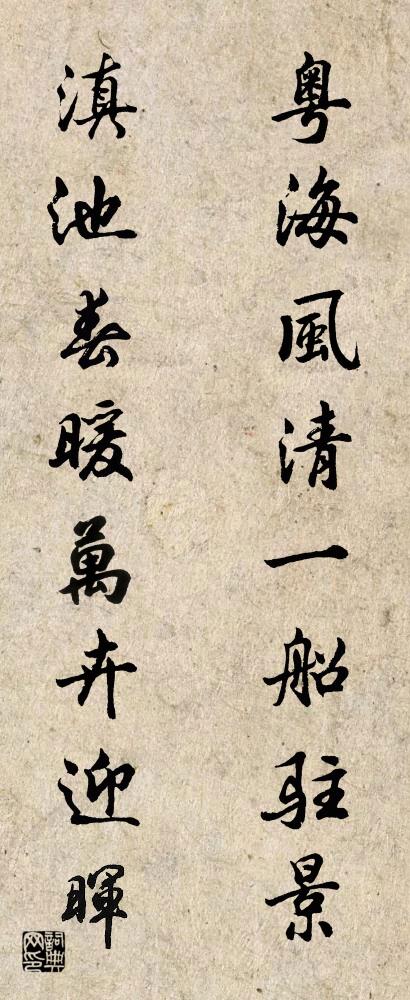 粤海風清一船駐景
滇池春暖萬卉迎暉
詞典网印